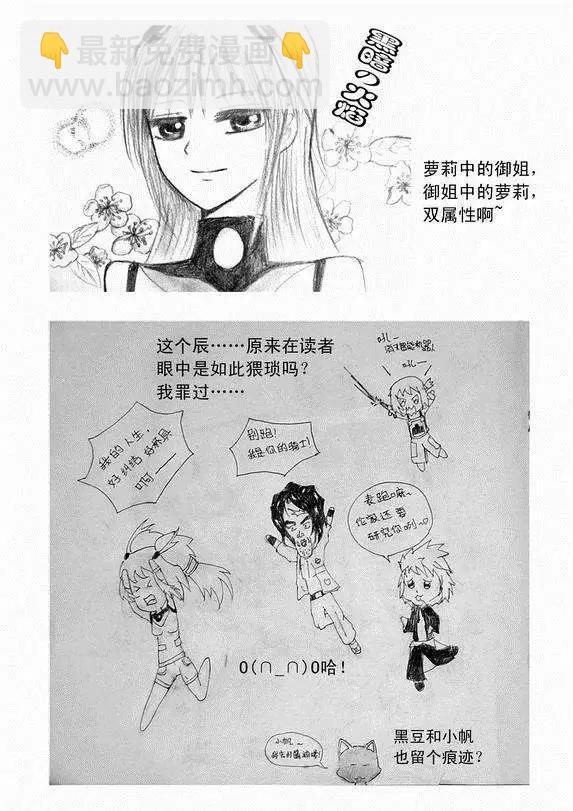 👇最新免费漫画👇
www.baozimh.com
黑暗の火焰
萝莉中的御姐，
御姐中的萝莉，
双属性啊~
这个辰……原来在读者
眼中是如此猥琐吗？
我罪过……
吼—
吼—
我的人生，
好纠结 好杯具
啊——
别跑！
我是你的骑士！
表跑嘛~
伦家还要
研究你咧~
O(∩_∩)O哈！
小帆~
黑豆和小帆
也留个痕迹？